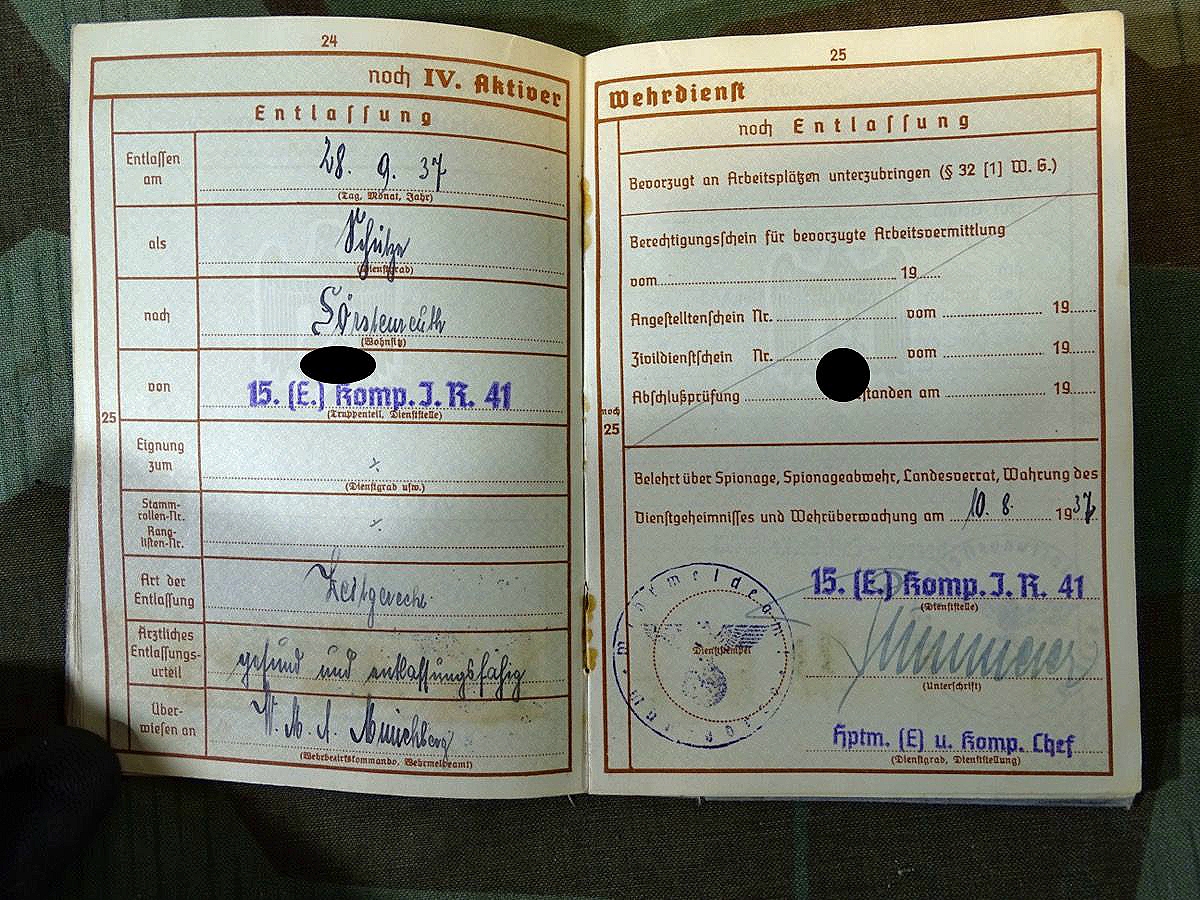 24
noch IV. Aktiver
Entlassung
Entlassen am
28. 9. 37
(Tag, Monat, Jahr)
als
Schütze
(Dienstgrad)
nach
(Wohnsitz)
von
15. (E.) Komp. J. R. 41
(Truppenteil, Dienststelle)
25
Eignung zum
(Dienstgrad usw.)
Stamm-
rollen-Nr.
Rang-
listen-Nr.
Art der
Entlassung
Zeitgerecht
Ärztliches
Entlassungs-
urteil
gesund und entlassungsfähig
Über-
wiesen an
W. M. A. Münchberg
(Wehrbezirkskommando, Wehrmeldeamt)
25
Wehrdienst
noch Entlassung
Bevorzugt an Arbeitsplätzen unterzubringen (§ 32 [1] W. G.)
Berechtigungsschein für bevorzugte Arbeitsvermittlung
vom 19
Angestelltenschein Nr. vom 19
Zivildienstschein Nr. vom 19
Abschlußprüfung standen am 19
noch
25
Belehrt über Spionage, Spionageabwehr, Landesverrat, Wahrung des
Dienstgeheimnisses und Wehrüberwachung am 10. 8. 1937
15. (E.) Komp. J. R. 41
(Dienststelle)
Dienststempel
(Unterschrift)
Hptm. (E) u. Komp. Chef
(Dienstgrad, Dienststellung)